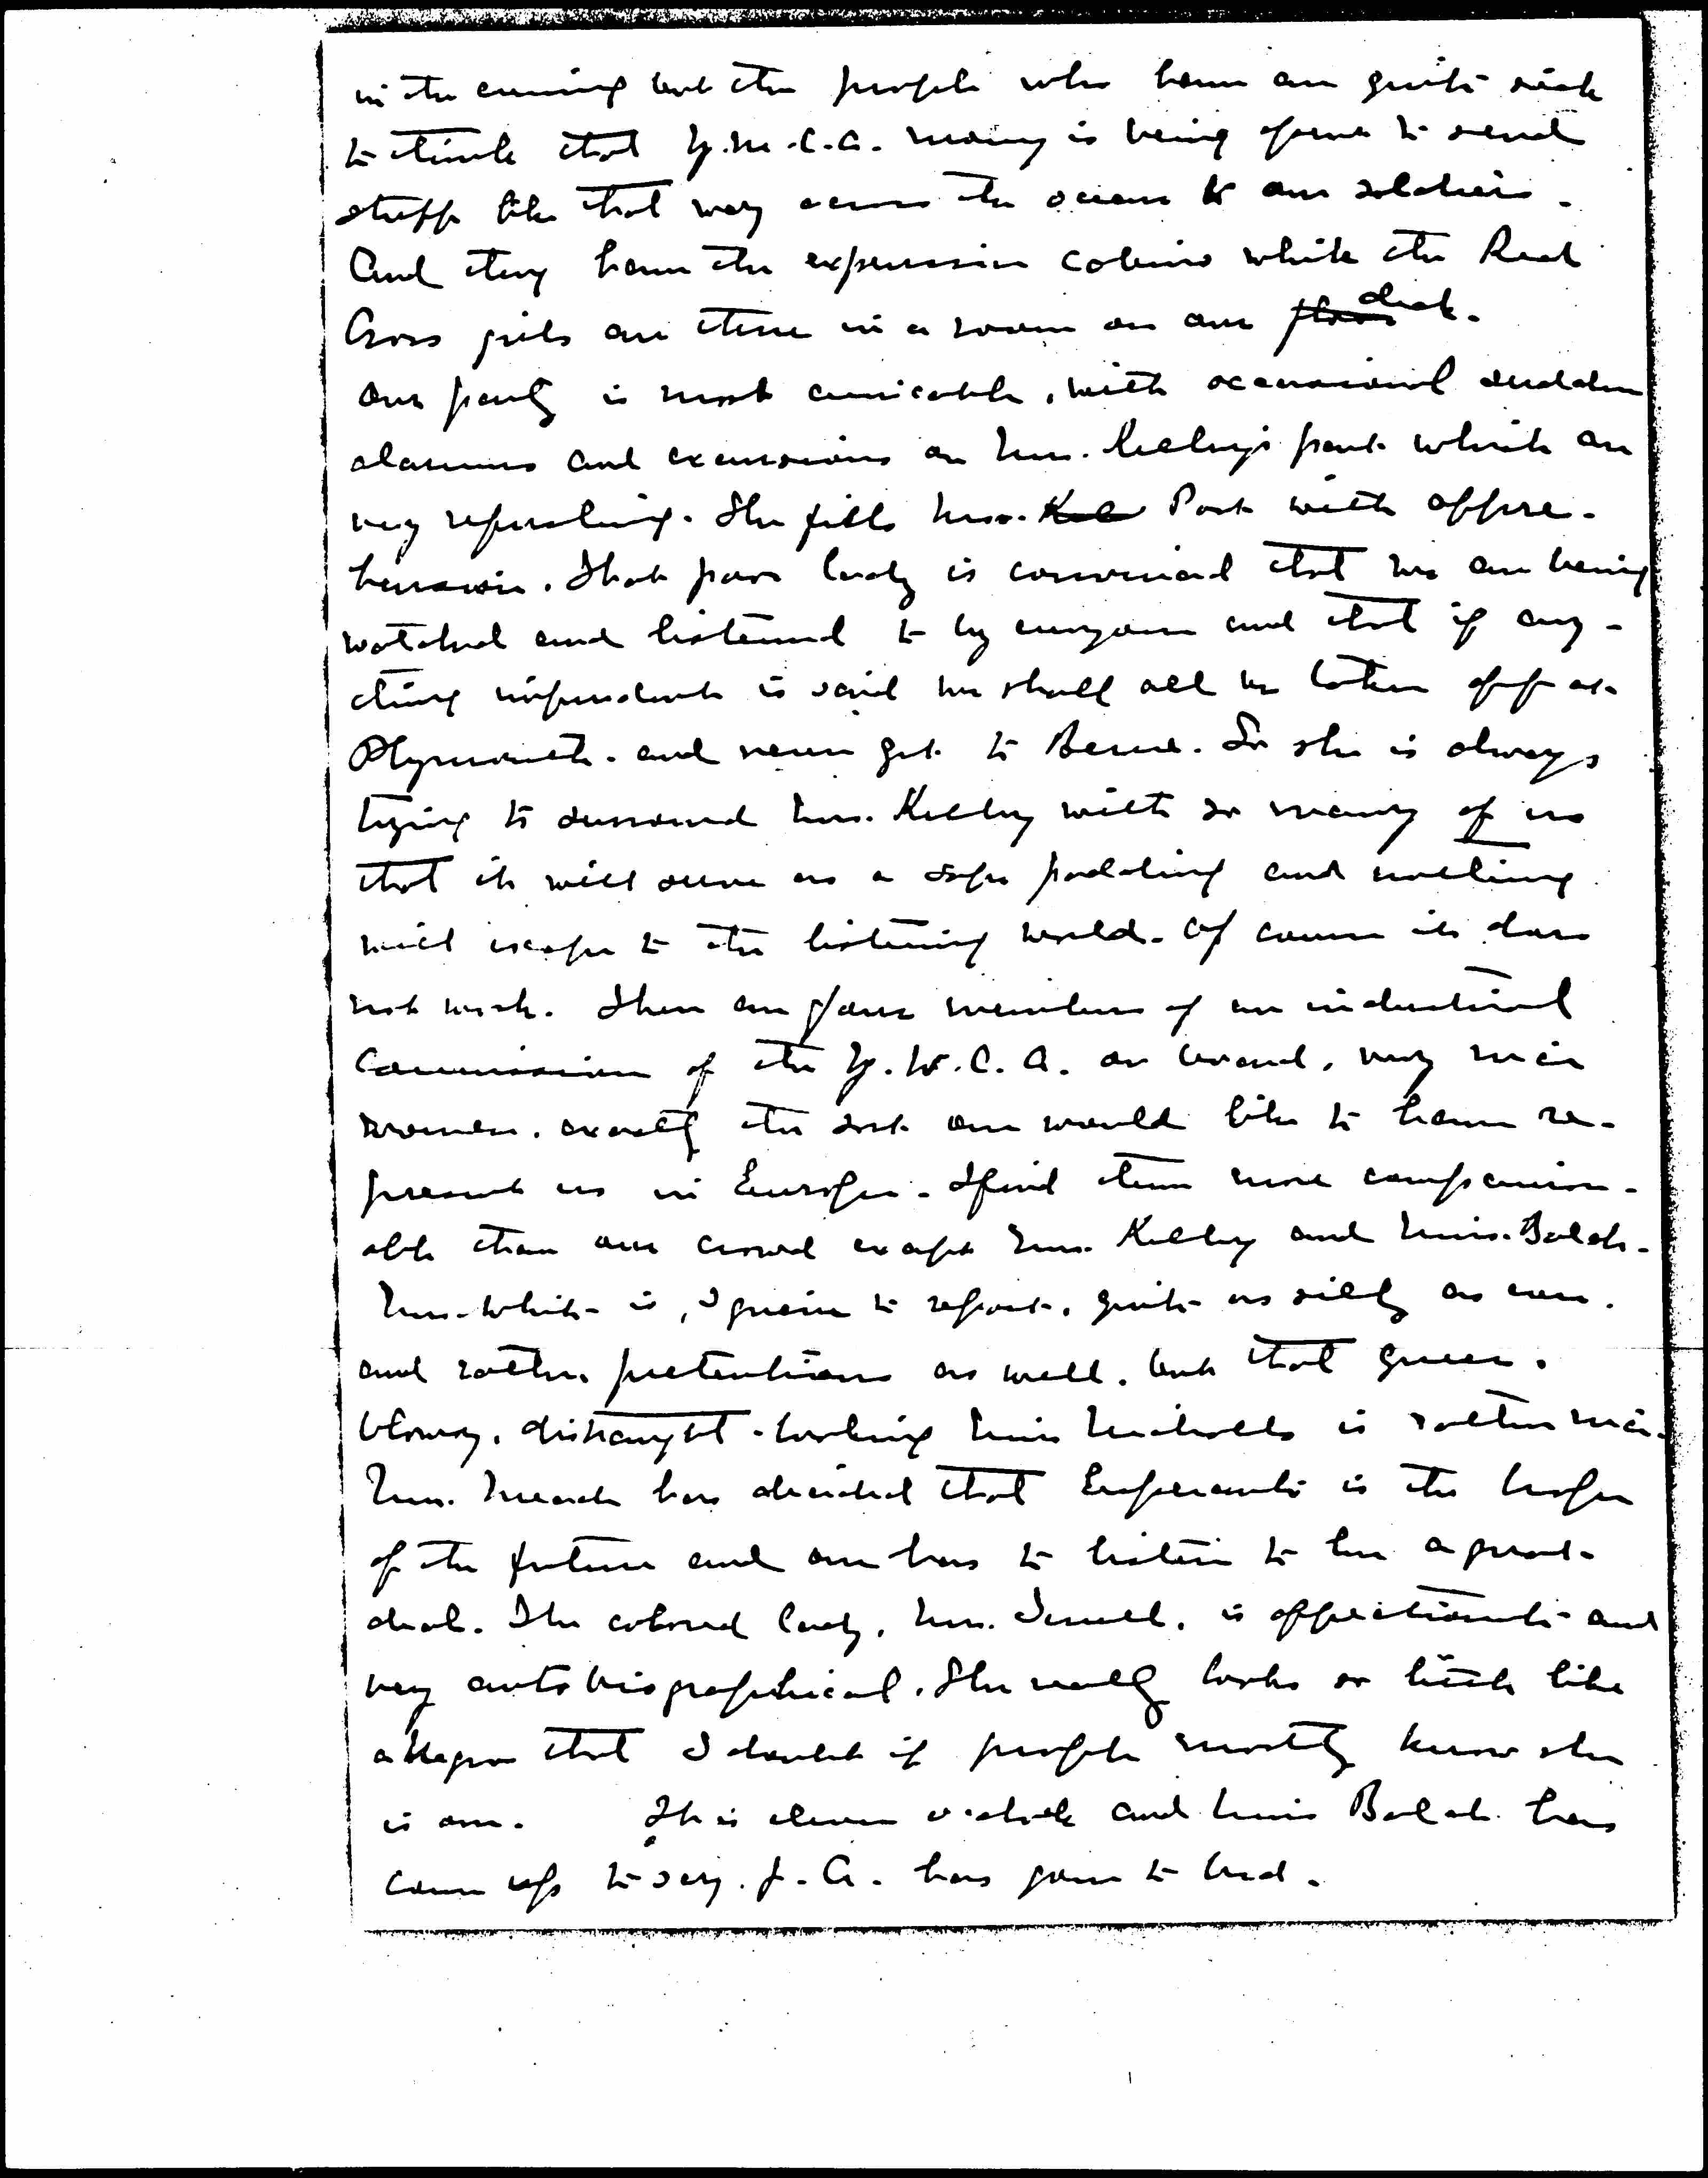 in the evening but the people who have are quite sick
to think that Y.M.C.A. money is being spent to send
stuff like that way across the ocean to our soldiers.
And they have the expensive cabins while the Red
Cross girls are three in a room on our ~~floor~~ deck.
Our party is most amicable, with occasional sudden
alarums and excursions on Mrs. Kelley's part which are
very refreshing. She fills Mrs. ~~Kel~~ Post with appre-
hension. That poor lady is convinced that we are being
watched and listened to by everyone and that if any-
thing imprudent is said we shall all be taken off at
Plymouth and never get to Berne. So she is always
trying to surround Mrs. Kelley with so many of us
that it will serve as a safe padding and nothing
will escape to the listening world. Of course it does
not work. There are four members of an industrial
Commission of the Y.W.C.A. on board, very nice
women, exactly the sort one would like to have re-
present us in Europe. I find them more companion-
able than our crowd except Mrs. Kelley and Miss Balch.
Mrs. White is, I grieve to report, quite as silly as ever.
and rather pretentious as well, but that queer,
blowsy, distraught-looking Miss Nichols is rather nice.
Mrs. Mead has decided that Esperanto is the hope
of the future and one has to listen to her a great
deal. The colored lady, Mrs. Terrell, is affectionate and
very autobiographical. She really looks so little like
a Negro that I doubt if people mostly know she
is one. It is eleven o'clock and Miss Balch has
come up to say J.A. has gone to bed.